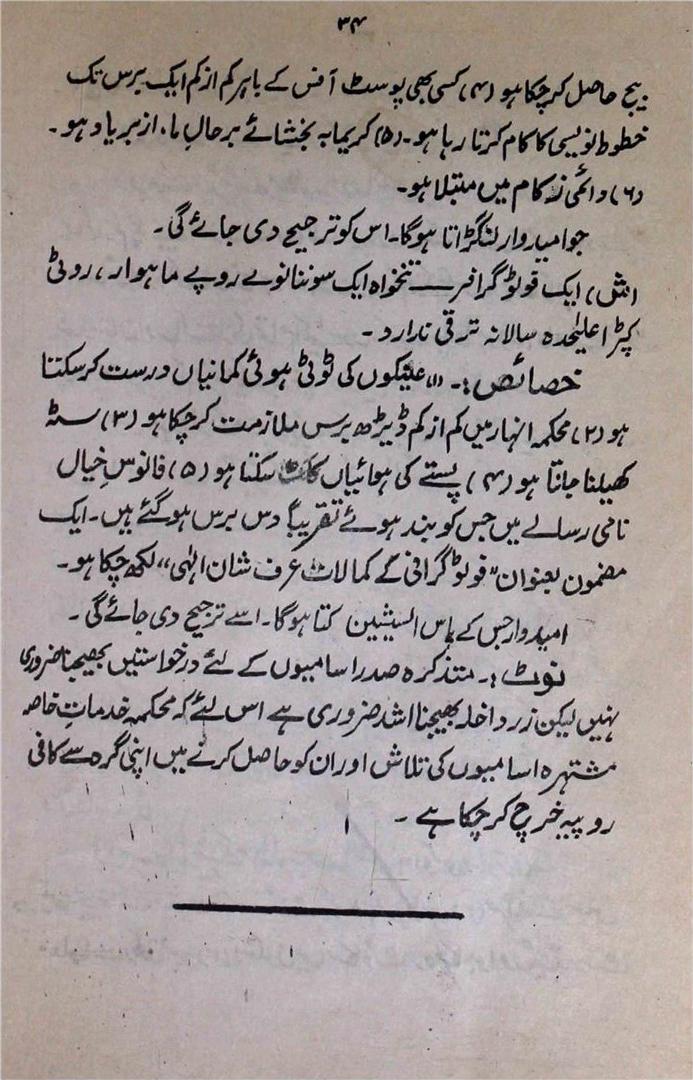 ۳۴
بیج حاصل کر چکا ہو (۴) کسی بھی پوسٹ آفس کے باہر کم از کم ایک برس تک
خطوط نویسی کا کام کرتا رہا ہو۔ (۵) کریما بہ بخشائے بر حالِ ما، ازبر یاد ہو۔
(۶) دائمی زکام میں مبتلا ہو۔
جو امیدوار لنگڑاتا ہوگا۔ اس کو ترجیح دی جائے گی۔
(ش) ایک فوٹو گرافر ــــ تنخواہ ایک سو ننانوے روپے ماہوار، روٹی
کپڑا علیٰحدہ سالانہ ترقی ندارد ۔
خصائص :۔ (۱) عینکوں کی ٹوٹی ہوئی کمانیاں درست کر سکتا
ہو (۲) محکمہ انہار میں کم از کم ڈیڑھ برس ملازمت کر چکا ہو (۳) سٹہ
کھیلنا جانتا ہو (۴) پستے کی ہوائیاں کاٹ سکتا ہو (۵) فانوس خیال
نامی رسالے میں جس کو بند ہوئے تقریباً دس برس ہو گئے ہیں۔ ایک
مضمون بعنوان ”فوٹو گرافی کے کمالات عرف شان الٰہی“ لکھ چکا ہو۔
امیدوار جس کے پاس السیشین کتا ہوگا۔ اسے ترجیح دی جائے گی ۔
نوٹ :۔ متذکرہ صدر اسامیوں کے لئے درخواستیں بھیجنا ضروری
نہیں لیکن زر داخلہ بھیجنا اشد ضروری ہے اس لئے کہ محکمہ خدماتِ خاصہ
مشتہرہ اسامیوں کی تلاش اور ان کو حاصل کرنے میں اپنی گرہ سے کافی
روپیہ خرچ کر چکا ہے ۔